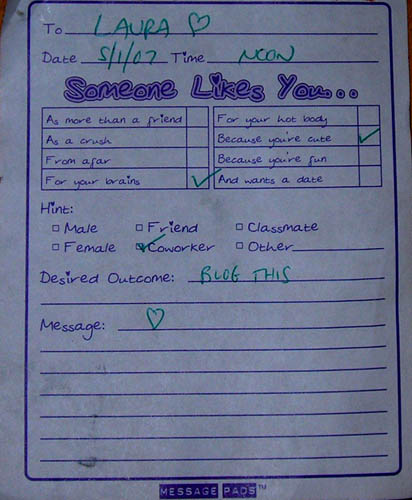 To LAURA ♡
Date 5/1/07 Time NOON
Someone Likes You...
As more than a friend For your hot body
As a crush Because you're cute ✓
From afar Because you're fun
For your brains ✓ And wants a date
Hint:
□ Male □ Friend □ Classmate
□ Female ☑ Coworker □ Other
Desired Outcome: BLOG THIS
Message: ♡
MESSAGE PADS™